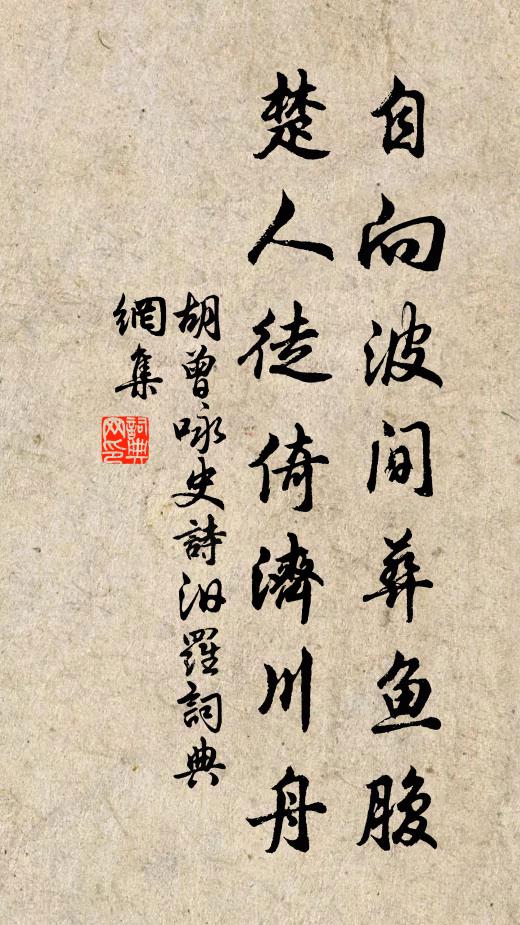 自向波間葬鱼腹
楚人徒倚濟川舟
胡曾咏史詩汨羅詞典
網集
詞典
网印